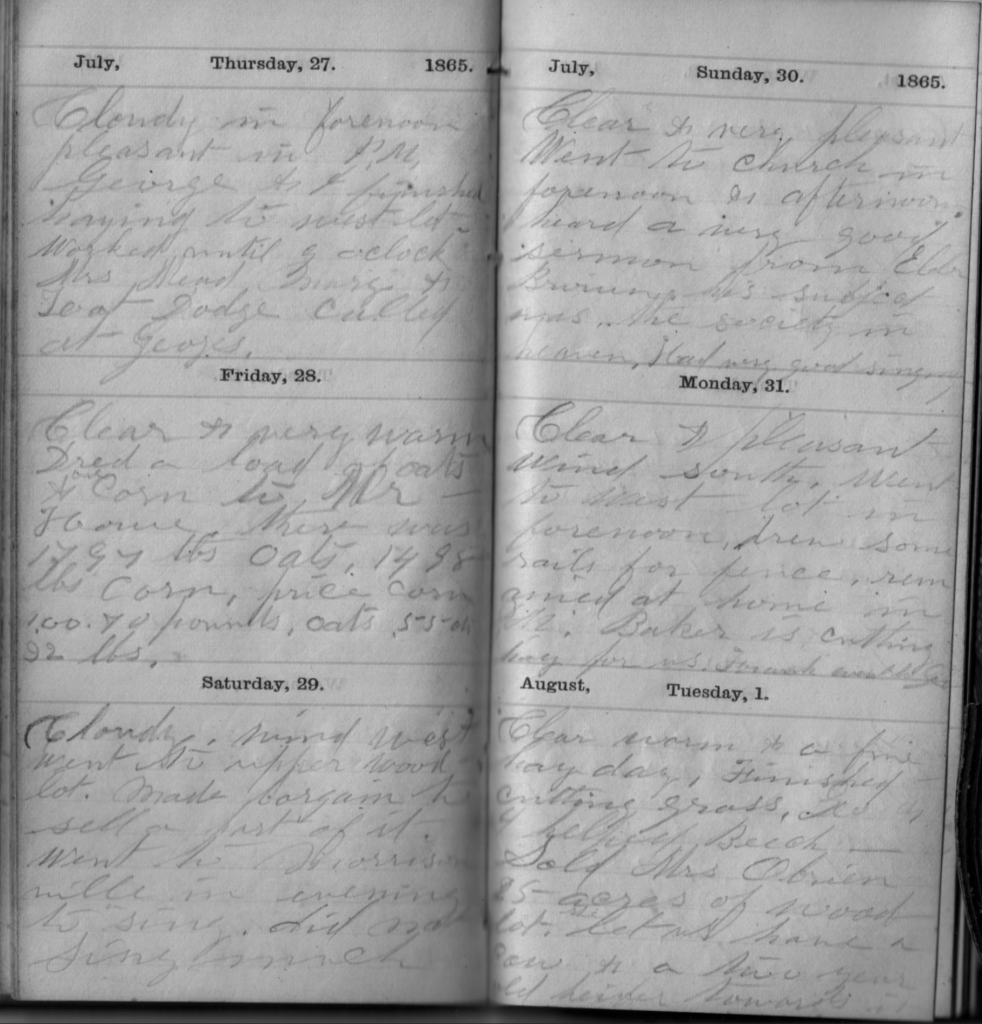 July, Thursday, 27. 1865.
Cloudy in forenoon
pleasant in P.M.
George & I finished
haying to west lot
Worked until 9 oclock
Mrs Mead &
Dodge called
at Georges.
Friday, 28.
Clear & very warm
a load of oats
& Corn to Mr
there was
1797 lbs Oats, 1498
lbs Corn, price Corn
1.00. 70 pounds, oats .55 
32 lbs.
Saturday, 29.
Cloudy, wind west
went to upper wood
lot. Made bargain to
sell a part of it.
Went to Morrison
ville in evening
to sing. did not
sing much
July, Sunday, 30. 1865.
Clear & very pleasant
Went to church in
forenoon & afternoon
heard a very good
sermon from Elder
his subject
was the society in
heaven, Had very good singing
Monday, 31.
Clear & pleasant
wind south. Went
to west lot in
forenoon, drew some
rails for fence. rem
ained at home in
Baker is cutting
hay for us.
August, Tuesday, 1.
Clear warm & a fine
hay day, Finished
cutting grass,
Beech
Sold Mrs Obrien
25 acres of wood
lot. let us have a
cow & a two year
old heifer towards it